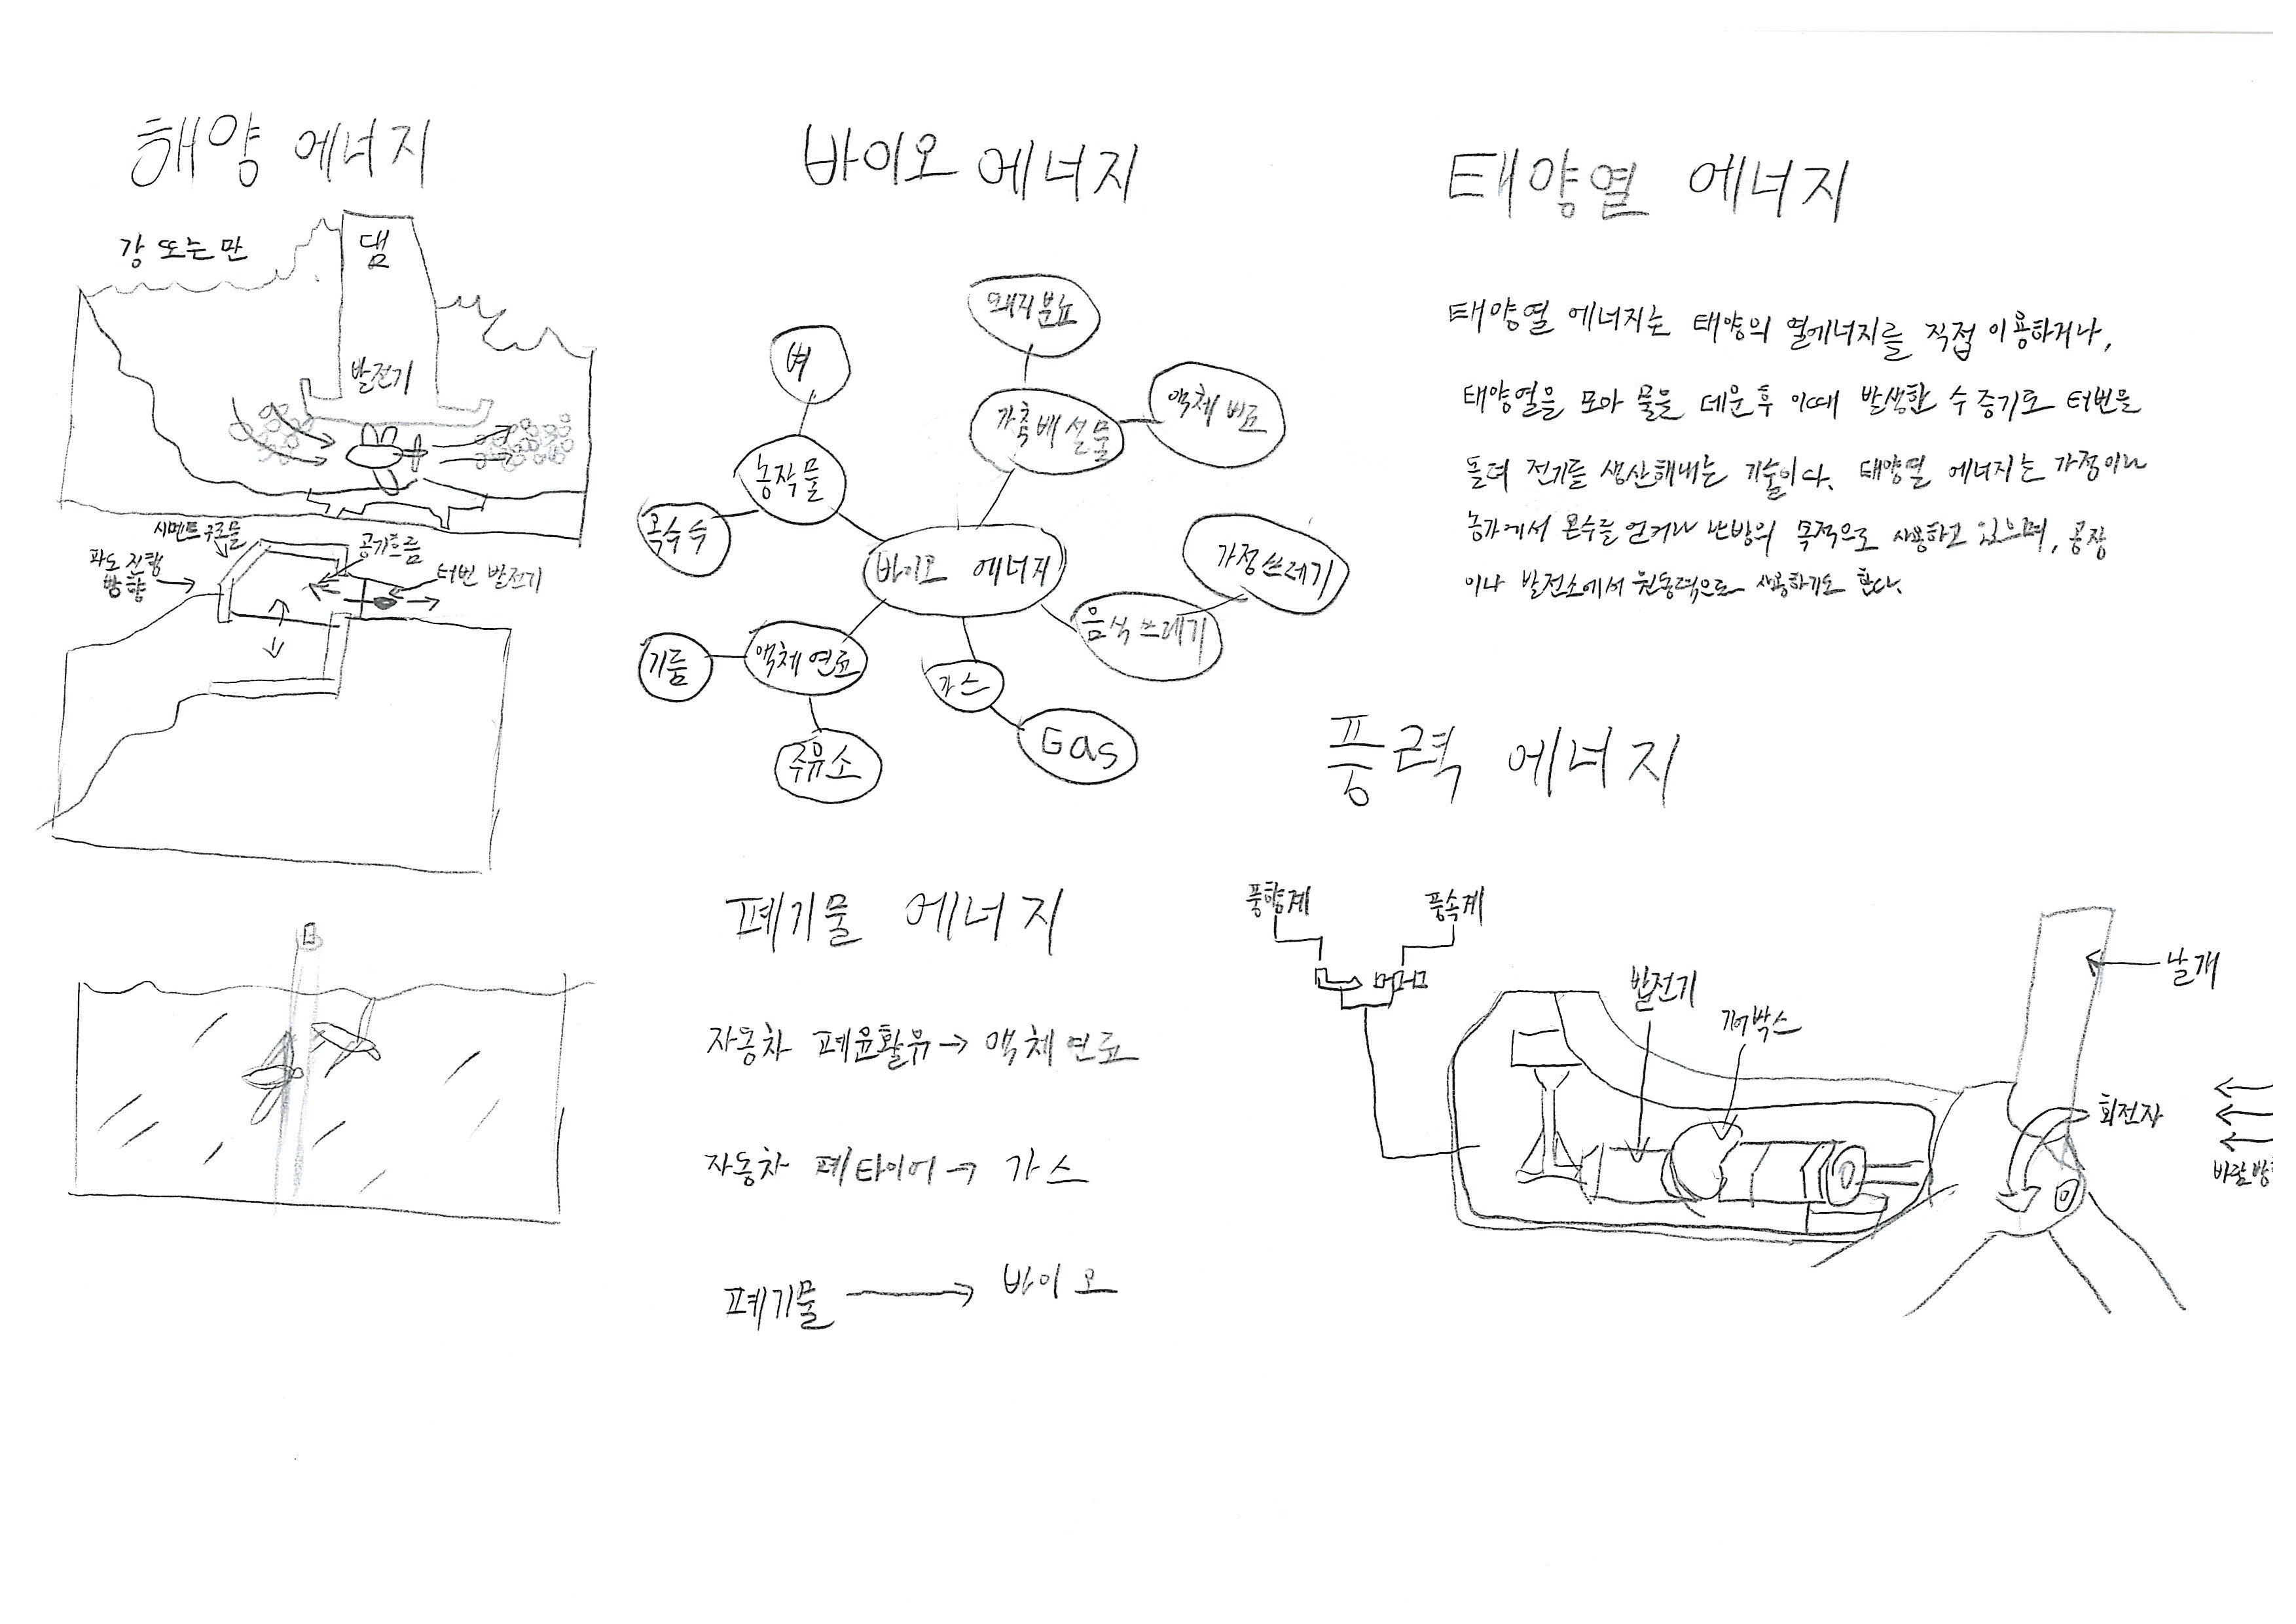 해양 에너지
강 또는 만
댐
발전기
시멘트 구조물
파도 진행
방향
공기흐름
터번 발전기
바이오 에너지
돼지분뇨
벼
가축배설물
액체비료
농작물
옥수수
바이오 에너지
가정쓰레기
음식쓰레기
기름
액체연료
가스
주유소
Gas
폐기물 에너지
자동차 폐윤활유→액체연료
자동차 폐타이어→ 가스
폐기물 → 바이오
태양열 에너지
태양열 에너지는 태양의 열에너지를 직접 이용하거나,
태양열을 모아 물을 데운후 이때 발생한 수증기로 터번을
돌려 전기를 생산해내는 기술이다. 태양열 에너지는 가정이나
농가에서 온수를 얻거나 난방의 목적으로 사용하고 있으며, 공장
이나 발전소에서 원동력으로 사용하기도 한다.
풍력 에너지
풍향계
풍속계
발전기
기어박스
날개
회전자
바람